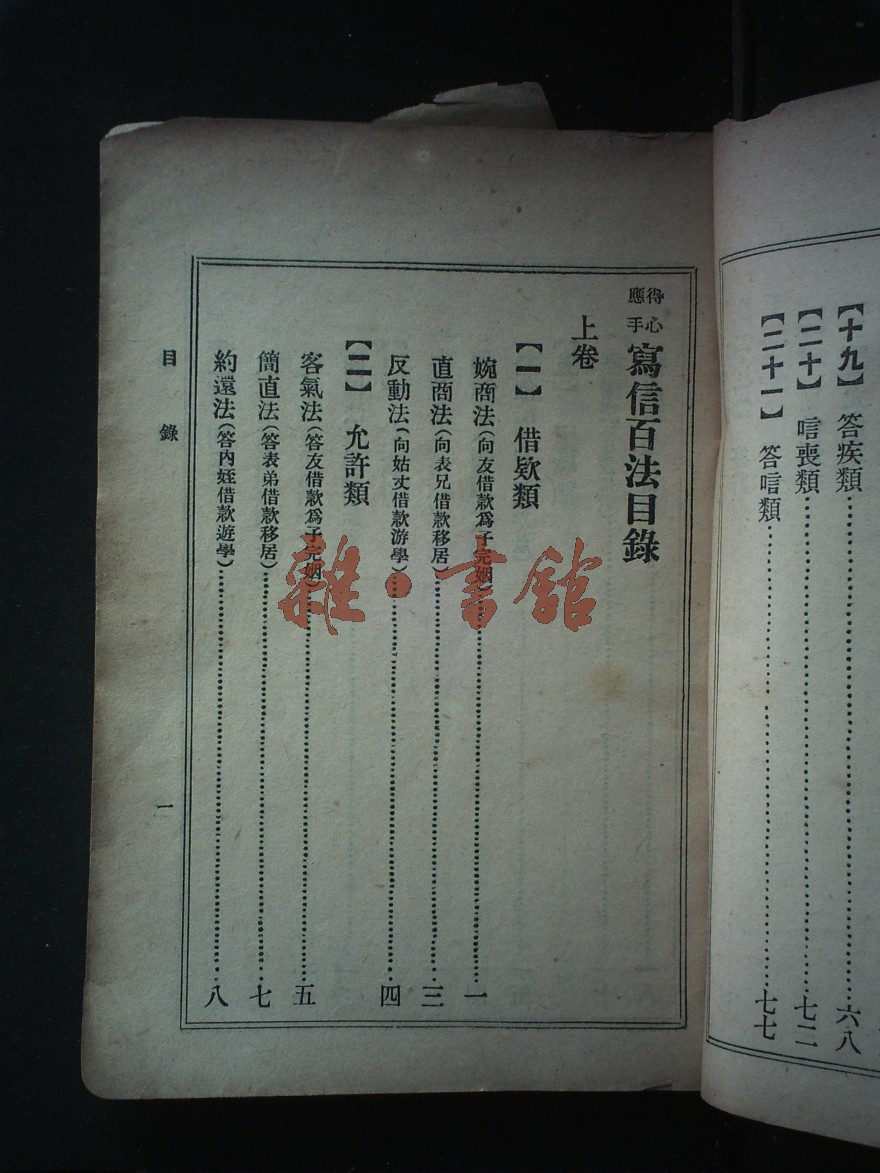 【十九】 答疾類 六八
【二十】 唁喪類 七二
【二十一】 答唁類 七七
得心應手 寫信百法目錄
上卷
【一】 借欵類
婉商法(向友借款爲子完姻) 一
直商法(向表兄借款移居) 三
反動法(向姑丈借款游學) 四
【二】 允許類
客氣法(答友借款爲子完姻) 五
簡直法(答表弟借款移居) 七
約遠法(答內姪借款遊學) 八
目錄 一
雜·書館